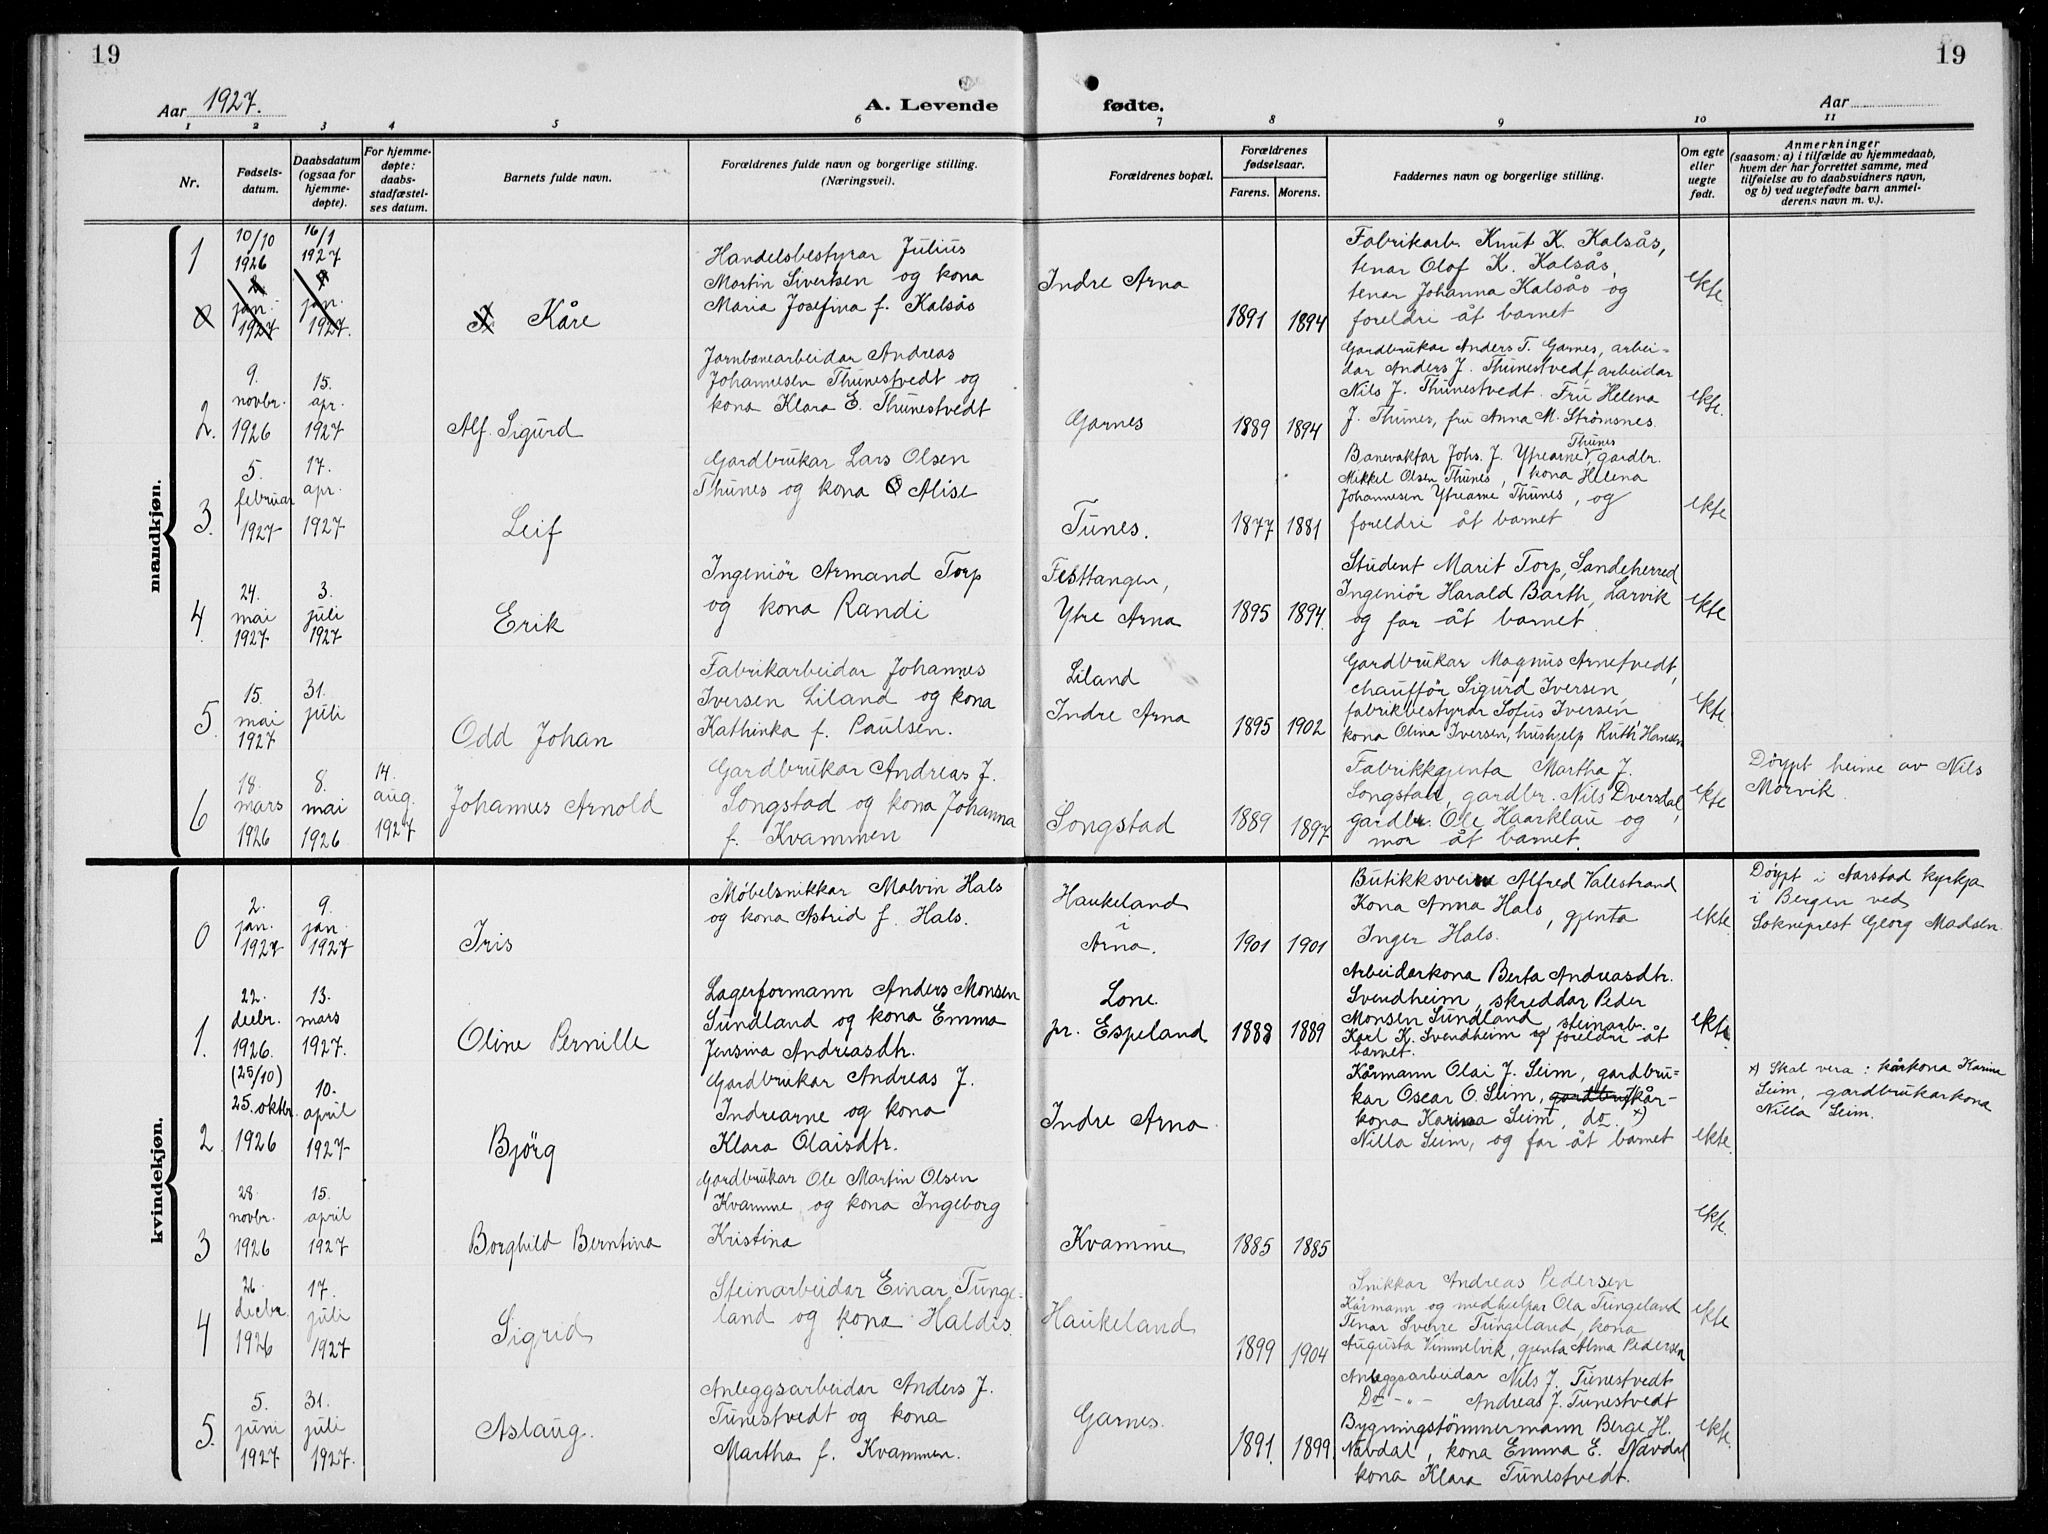 19
19
Aar 1927.
A. Levende
fødte.
Aar
1
2
3
4
5
6
7
8
9
10
11
Nr.
Fødsels-
datum.
Daabsdatum
(ogsaa for
hjemme-
døpte).
For hjemme-
døpte:
daabs-
stadfæstel-
ses datum.
Barnets fulde navn.
Forældrenes fulde navn og borgerlige stilling.
(Næringsvei).
Forældrenes bopæl.
Forældrenes
fødselsaar.
Farens.
Morens.
Faddernes navn og borgerlige stilling.
Om egte
eller
uegte
født.
Anmerkninger
(saasom: a) i tilfælde av hjemmedaab,
hvem der har forrettet samme, med
tilføielse av to daabsvidners navn,
og b) ved uegtefødte barn anmel-
derens navn m. v.).
mandkjøn.
1
10/10
1926
16/1
1927
0
2
jan.
1927
9
jan.
1927.
Kåre
Handelsbestyrar Julius
Martin Sivertsen og kona
Maria Josefina f. Kalsås
Indre Arna
1891
1894
Fabrikarb. Knut K. Kalsås,
tenar Olof K. Kalsås,
tenar Johanna Kalsås og
foreldri åt barnet
ekte.
2.
9.
novbr.
1926
15.
apr.
1927
Alf Sigurd
Jarnbanearbeidar Andreas
Johannesen Thunestvedt og
kona Klara E. Thunestvedt
Garnes
1889
1894
Gardbrukar Anders T. Garnes, arbei-
dar Anders J. Thunestvedt, arbeidar
Nils J. Thunestvedt. Fru Helena
J. Thunes, fru Anna M. Strømsnes.
ekte.
3.
5.
februar
1927
17.
apr.
1927
Leif
Gardbrukar Lars Olsen
Thunes og kona Alise
Tunes.
1877
1881
Banevaktar Johs. J. Ytrearne Thunes gardbr.
Mikkel Olsen Thunes, kona Helena
Johannesen Ytrearne Thunes, og
foreldri åt barnet
ekte
4.
24.
mai
1927
3.
juli
1927
Erik
Ingeniör Armand Torp
og kona Randi
Festtangen,
Ytre Arna
1895
1894.
Student Marit Torp, Sandeherred
Ingeniör Harald Barth, Larvik
og far åt barnet.
ekte
5.
15.
mai
1927
31.
juli
Odd Johan
Fabrikarbeidar Johannes
Iversen Liland og kona
Kathinka f. Paulsen.
Liland
Indre Arna
1895
1902
Gardbrukar Magnus Arnetvedt,
chaufför Sigurd Iversen,
fabrikbestyrar Sofus Iversen
kona Olina Iversen, hushjelp Ruth Hansen
ekte.
6
18.
mars
1926
8.
mai
1926
14.
aug.
1927
Johannes Arnold
Gardbrukar Andreas J.
Songstad og kona Johanna
f. Kvammen
Songstad
1889
1897
Fabrikkgjenta Martha J.
Songstad, gardbr. Nils Dversdal,
gardbr. Ole Haarklau og
mor åt barnet.
ekte
Døypt heime av Nils
Morvik.
kvindekjøn.
0
2.
jan.
1927
9.
jan.
1927
Iris
Møbelsnikkar Malvin Hals
og kona Astrid f. Hals.
Haukeland
i
Arna.
1901
1901
Butikksvein Alfred Valestrand
Kona Anna Hals, gjenta
Inger Hals.
ekte.
Døypt i Aarstad kyrkja
i Bergen ved
Sokneprest Georg Madsen.
1.
22.
decbr.
1926.
13.
mars
1927.
Oline Pernille
Lagerformann Anders Monsen
Sundland og kona Emma
Jensina Andreasdtr.
Lone
pr. Espeland
1888
1889
Arbeidarkona Berta Andreasdtr.
Svendheim, skreddar Peder
Monsen Sundland, steinarb.
Karl K. Svendheim og foreldri åt
barnet.
ekte.
2
(25/10)
25. oktbr.
1926
10.
april
1927
Bjørg
Gardbrukar Andreas J.
Indrearne og kona
Klara Olaisdtr.
Indre Arna.
Kårmann Olai J. Seim, gardbru-
kar Oscar O. Seim, kår-
kona Karina Seim, do. x)
Nilla Seim, og far åt barnet
ekte.
x) Skal vera: kårkona Karina
Seim, gardbrukarkona
Nilla Seim.
3
28.
novbr.
1926
15.
april
1927
Borghild Berntina
Gardbrukar Ole Martin Olsen
Kvamme og kona Ingeborg
Kristina
Kvamme
1885
1885
ekte.
4
26.
decbr.
1926
17.
juli
1927
Sigrid
Steinarbeidar Einar Tunge-
land og kona Haldis
Haukeland
1899
1904
Snikkar Andreas Pedersen
Kårmann og medhjelpar Ola Tungeland
Tenar Sverre Tungeland, kona
Augusta Vimmelvik, gjenta Alma Pedersen
ekte
5.
5.
juni
1927
31.
juli
1927.
Aslaug.
Anleggsarbeidar Anders J.
Tunestvedt og kona
Martha f. Kvammen.
Garnes.
1891
1899.
Anleggsarbeidar Nils J. Tunestvedt
Do - " - Andreas J. Tunestvedt
Bygningstömmermann Berge H.
Navdal, kona Emma E. Navdal
kona Klara Tunestvedt.
ekte.